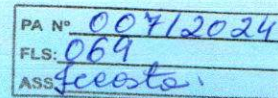 PA Nº 007/2024
FLS: 069
ASS